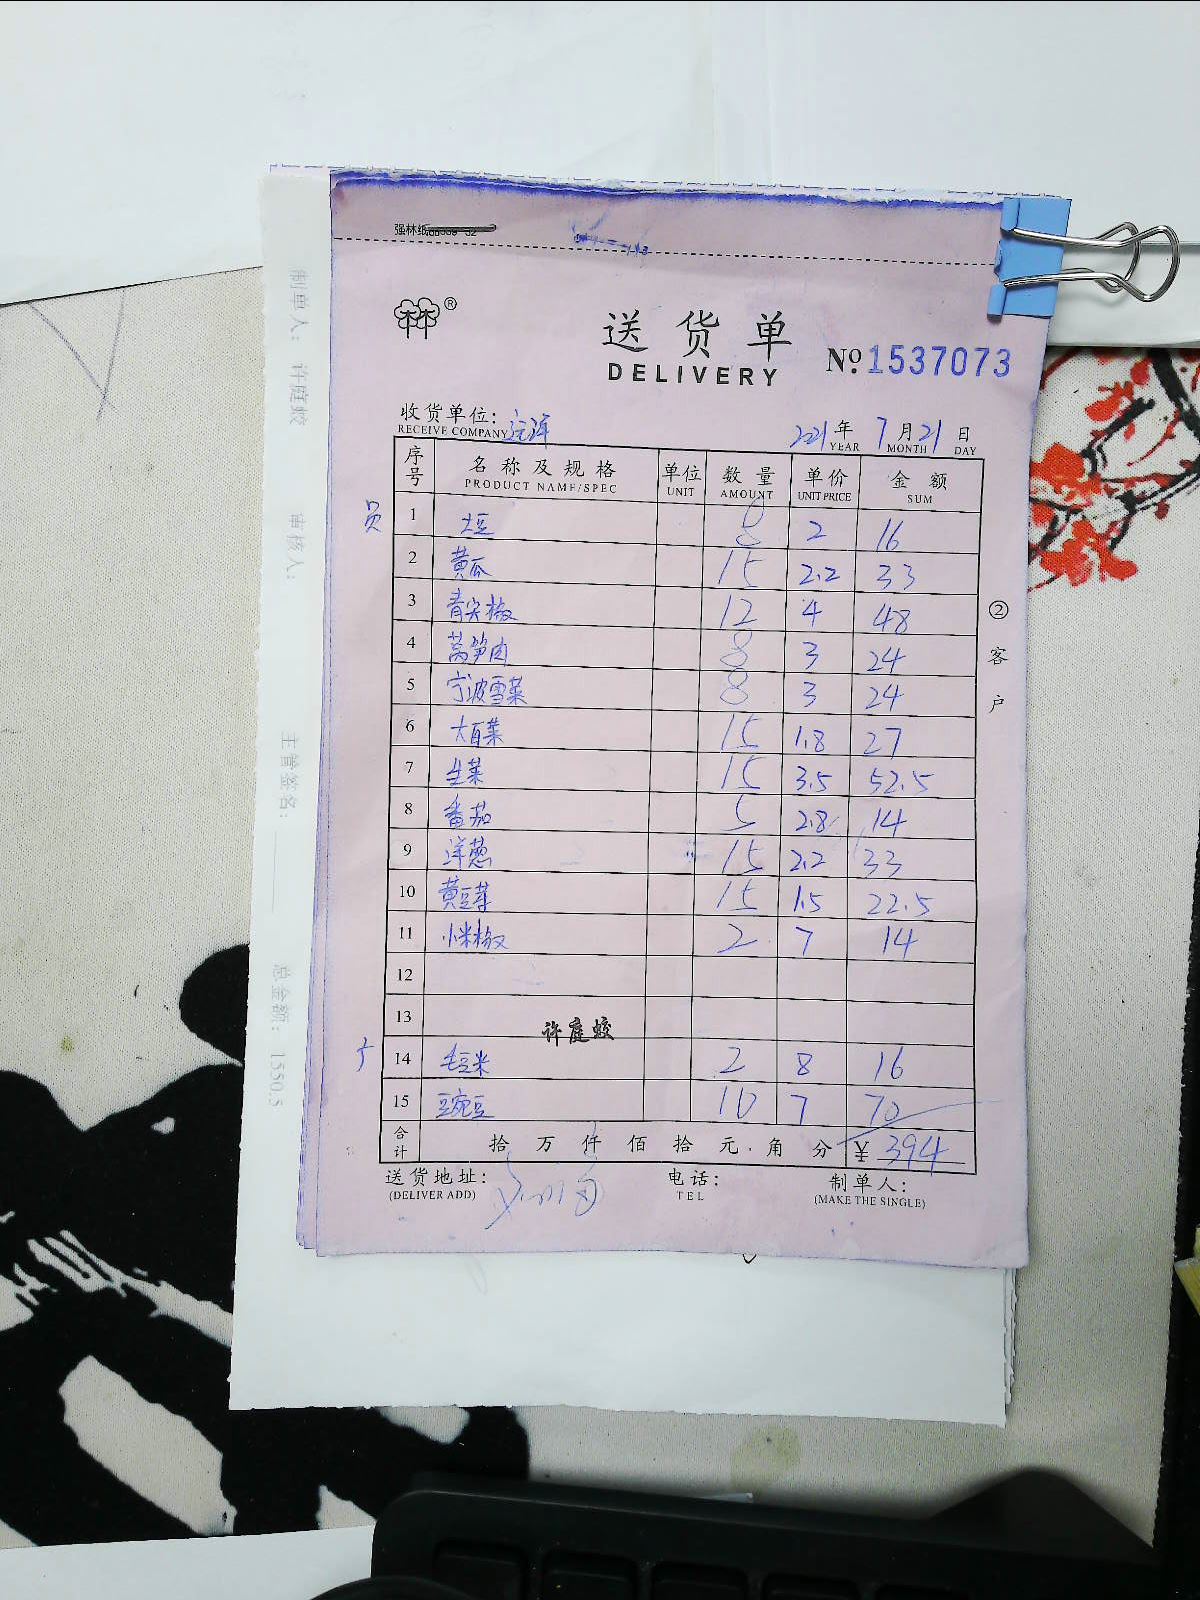 强林纸
送货单
DELIVERY
No. 1537073
收货单位:
RECEIVE COMPANY
2021 年 7 月 21 日
YEAR MONTH DAY
序号 名称及规格 单位 数量 单价 金额
PRODUCT NAME/SPEC UNIT AMOUNT UNIT PRICE SUM
员
1 土豆 8 2 16
2 黄瓜 15 2.2 33
3 青尖椒 12 4 48
4 莴笋肉 8 3 24
5 宁波雪菜 8 3 24
6 大白菜 15 1.8 27
7 生菜 15 3.5 52.5
8 番茄 5 2.8 14
9 洋葱 15 2.2 33
10 黄豆芽 15 1.5 22.5
11 小米椒 2 7 14
12
13
许庭蛟
14 毛豆米 2 8 16
15 豆豌豆 10 7 70
合计 拾 万 仟 佰 拾 元 角 分 ¥ 394
送货地址: 电话: 制单人:
(DELIVER ADD) TEL (MAKE THE SINGLE)
② 客户
制单人: 许庭蛟 审核人: 主管签名: 总金额: 1550.5